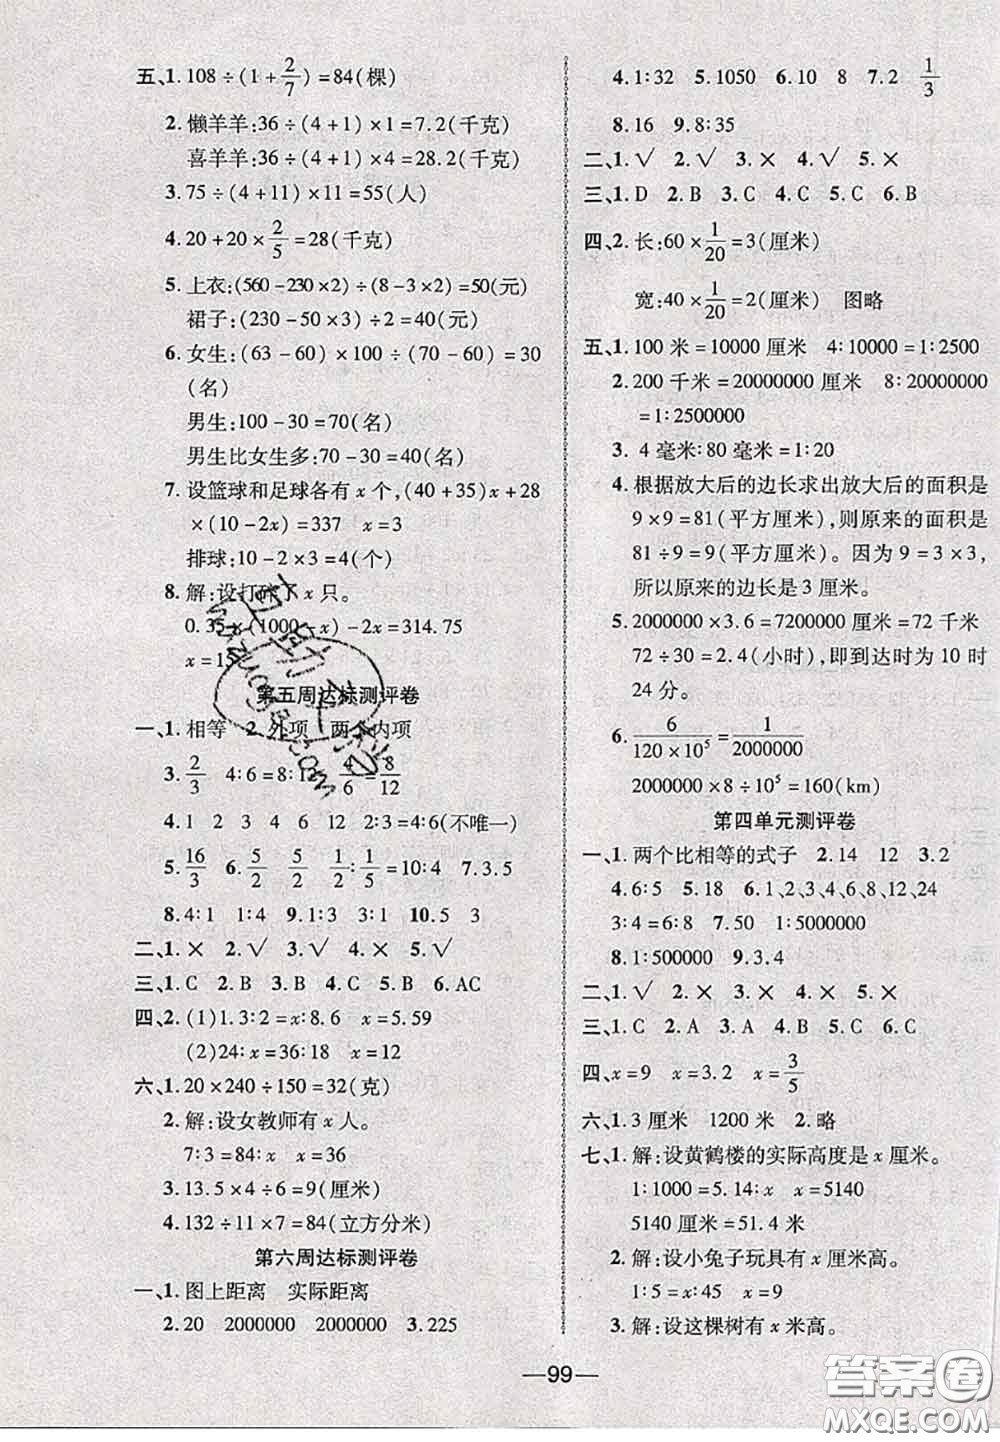 五、1. 108÷(1+2/7)=84(棵)
2. 懒羊羊:36÷(4+1)×1=7.2(千克)
喜羊羊:36÷(4+1)×4=28.2(千克)
3. 75÷(4+11)×11=55(人)
4. 20+20×2/5=28(千克)
5. 上衣:(560-230×2)÷(8-3×2)=50(元)
裙子:(230-50×3)÷2=40(元)
6. 女生:(63-60)×100÷(70-60)=30
(名)
男生:100-30=70(名)
男生比女生多:70-30=40(名)
7. 设篮球和足球各有x个,(40+35)x+28
×(10-2x)=337 x=3
排球:10-2×3=4(个)
8. 解:设打碎了x只。
0.35×(1000-x)-2x=314.75
x=15
第五周达标测评卷
一、1. 相等 2. 外项 两个内项
3. 2/3 4:6=8:12 4/6=8/12
4. 1 2 3 4 6 12 2:3=4:6(不唯一)
5. 16/3 6. 5/2 5/2 1/2:1/5=10:4 7. 3.5
8. 4:1 4:1 9. 1:3 10. 5 3
二、1. × 2. √ 3. √ 4. × 5. √
三、1. C 2. B 3. B 4. C 5. B 6. AC
四、2. (1)1.3:2=x:8.6 x=5.59
(2)24:x=36:18 x=12
六、1. 20×240÷150=32(克)
2. 解:设女教师有x人。
7:3=84:x x=36
3. 13.5×4÷6=9(厘米)
4. 132÷11×7=84(立方分米)
第六周达标测评卷
一、1. 图上距离 实际距离
2. 20 2000000 2000000 3. 225
4. 1:32 5. 1050 6. 10 8 7. 2 1/3
8. 16 9. 8:35
二、1. √ 2. √ 3. × 4. √ 5. ×
三、1. D 2. B 3. C 4. C 5. C 6. B
四、2. 长:60×1/20=3(厘米)
宽:40×1/20=2(厘米) 图略
五、1. 100米=10000厘米 4:10000=1:2500
2. 200千米=20000000厘米 8:20000000
=1:2500000
3. 4毫米:80毫米=1:20
4. 根据放大后的边长求出放大后的面积是
9×9=81(平方厘米),则原来的面积是
81÷9=9(平方厘米)。因为9=3×3,
所以原来的边长是3厘米。
5. 2000000×3.6=7200000厘米=72千米
72÷30=2.4(小时),即到达时为10时
24分。
6. 6/(120×10⁵)=1/2000000
2000000×8÷10⁵=160(km)
第四单元测评卷
一、1. 两个比相等的式子 2. 14 12 3. 2
4. 6:5 5. 18 6. 1、2、3、4、6、8、12、24
3:4=6:8 7. 50 1:5000000
8. 1:500000 9. 3.4
二、1. √ 2. × 3. × 4. × 5. ×
三、1. C 2. A 3. A 4. B 5. A 6. C
四、x=9 x=3.2 x=3/5
六、1. 3厘米 1200米 2. 略
七、1. 解:设黄鹤楼的实际高度是x厘米。
1:1000=5.14:x x=5140
5140厘米=51.4米
2. 解:设小兔子玩具有x厘米高。
1:5=x:45 x=9
3. 解:设这棵树有x米高。
—99—
答案圈
MXQE.COM